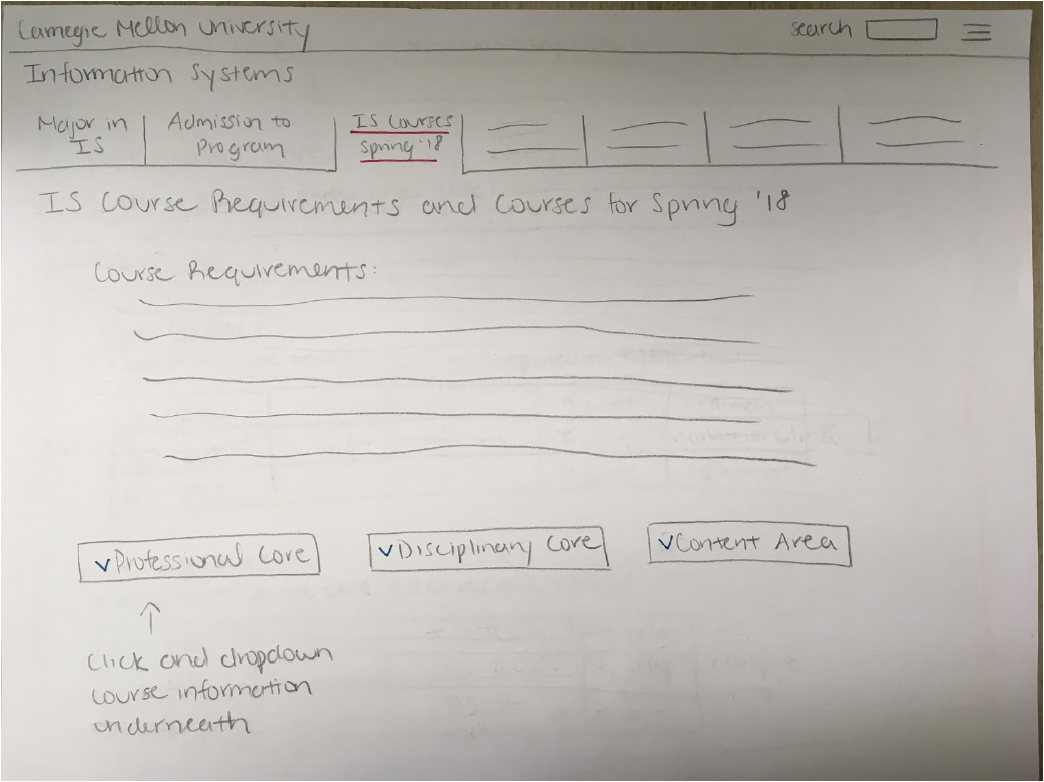 Carnegie Mellon University search
Information Systems
Major in IS
Admission to Program
IS Courses Spring '18
IS Course Requirements and Courses for Spring '18
Course Requirements:
Professional Core
Disciplinary Core
Content Area
Click and dropdown
course information
underneath